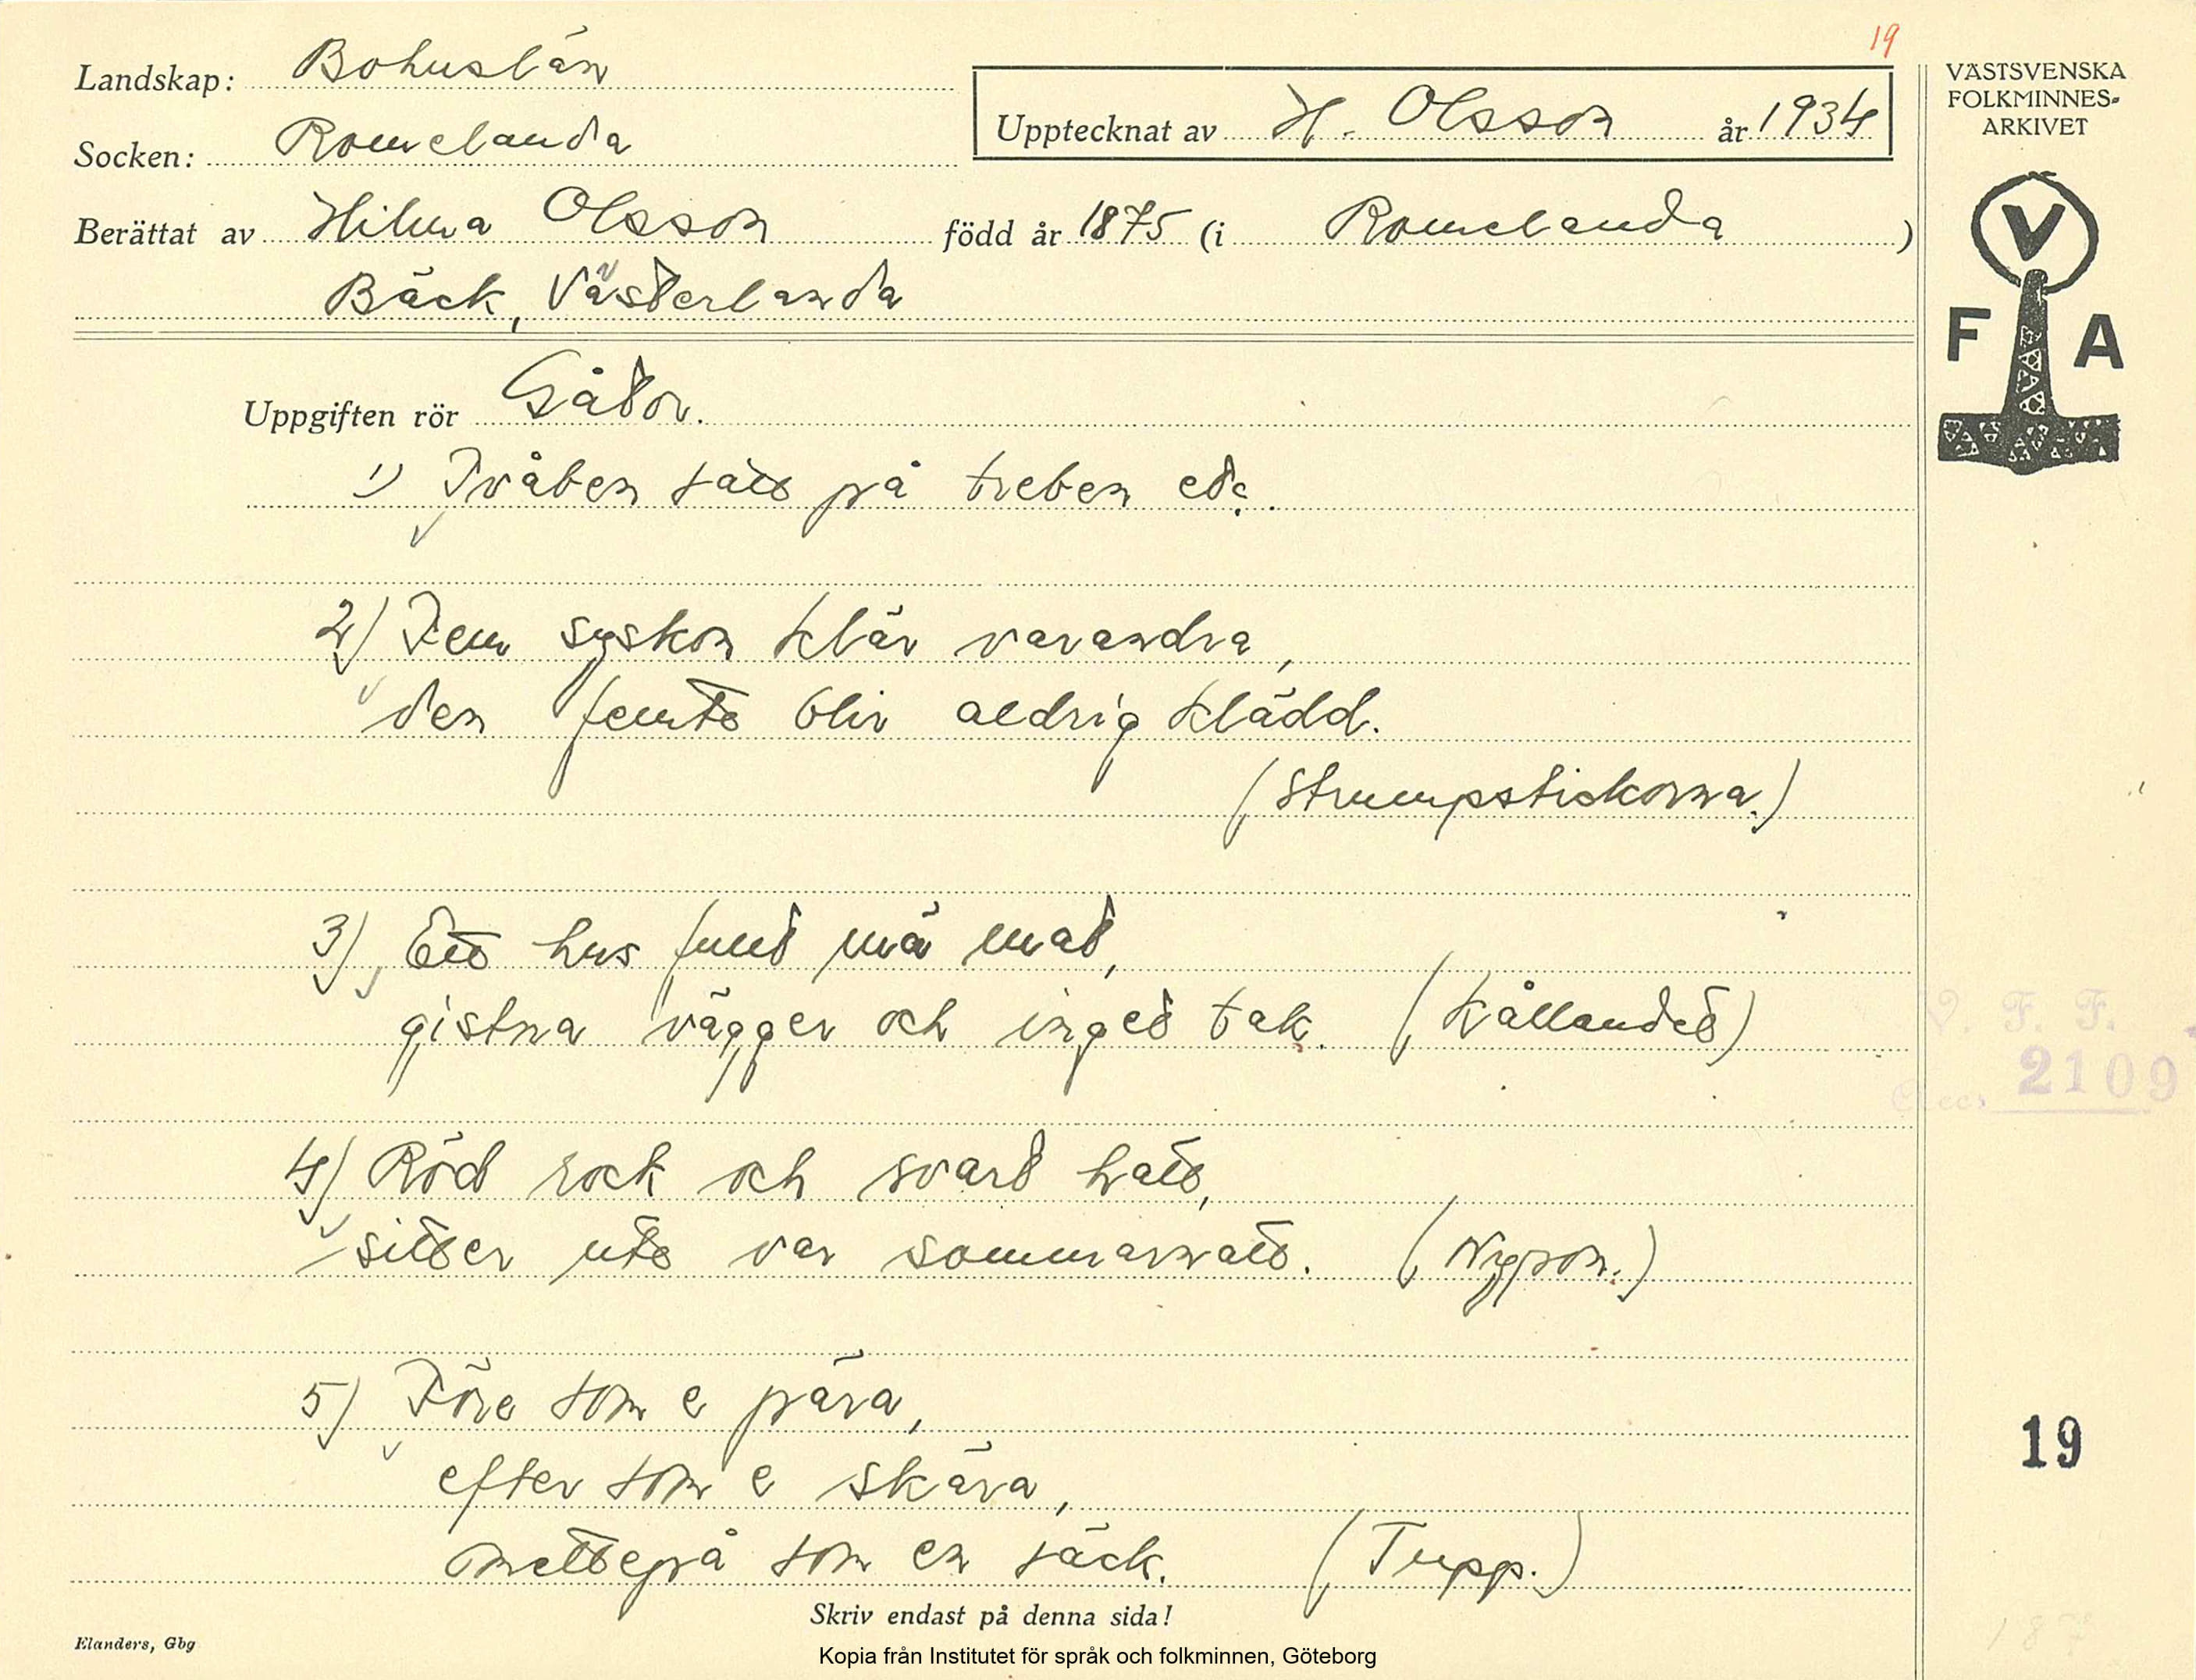 19
Landskap: Bohuslän
Upptecknat av H. Olsson år 1934
Socken: Romelanda
Berättat av Hilma Olsson född år 1875 (i Romelanda)
Bäck, Västerlanda
VÄSTSVENSKA
FOLKMINNES-
ARKIVET
V
F A
Uppgiften rör Gåtor.
1) Tvåben satt på treben etc.
2) Fem syskon klär varandra,
den femte blir aldrig klädd.
(Strumpstickorna.)
3) Ett hus fullt mä mat,
gistna vägger och inget tak. (Kållandet)
V. F. F.
2109
4) Röd rock och svart hatt,
sitter ute var sommarnatt. (Nypon.)
5) Före som e pära,
efter som e skära,
mettepå som en säck. (Tupp.)
19
Skriv endast på denna sida!
Elanders, Gbg
Kopia från Institutet för språk och folkminnen, Göteborg